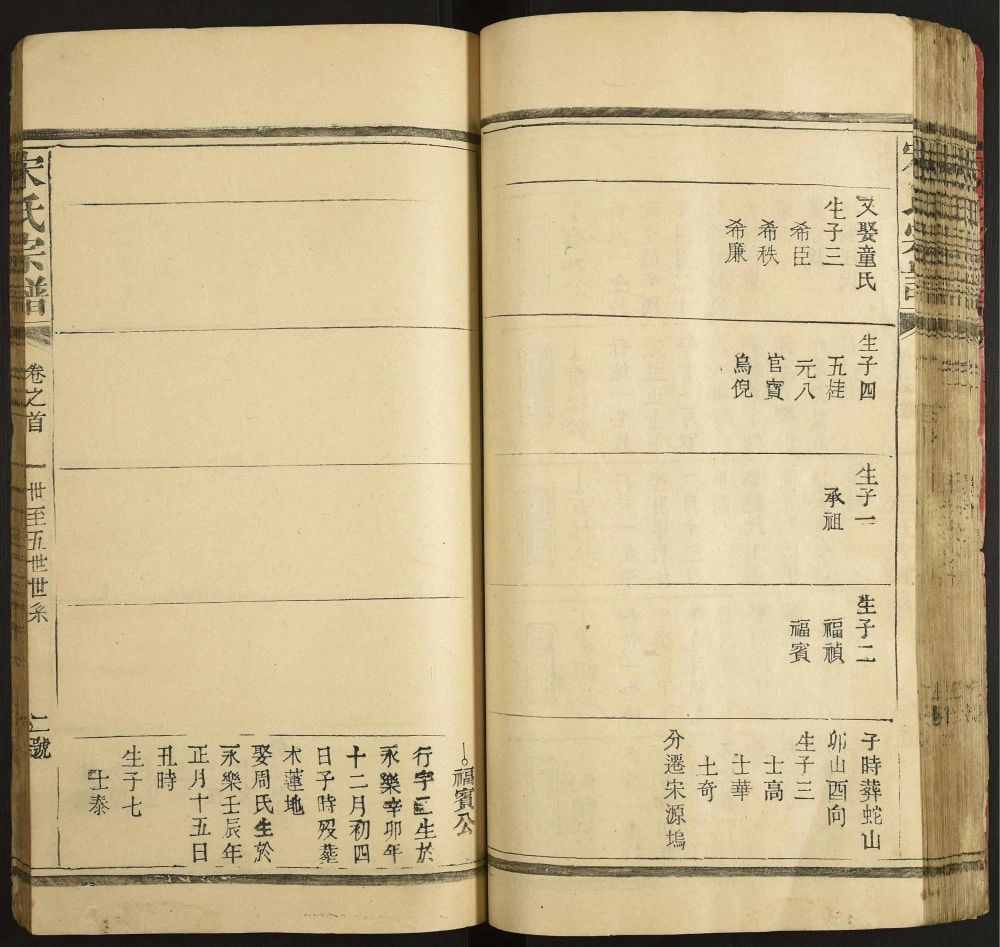 又娶童氏
生子三
希臣
希秩
希廉
生子四
五桂
元八
官寶
烏倪
生子一
承祖
生子二
福禎
福賓
子時葬蛇山
卯山酉向
生子三
士高
士華
士奇
分遷宋源塢
福賓公
行字三生於
永樂辛卯年
十二月初四
日子時歿葬
木蓮地
娶周氏生於
永樂壬辰年
正月十五日
丑時
生子七
士泰
宋氏宗譜
卷之首
一世至五世世系
二號